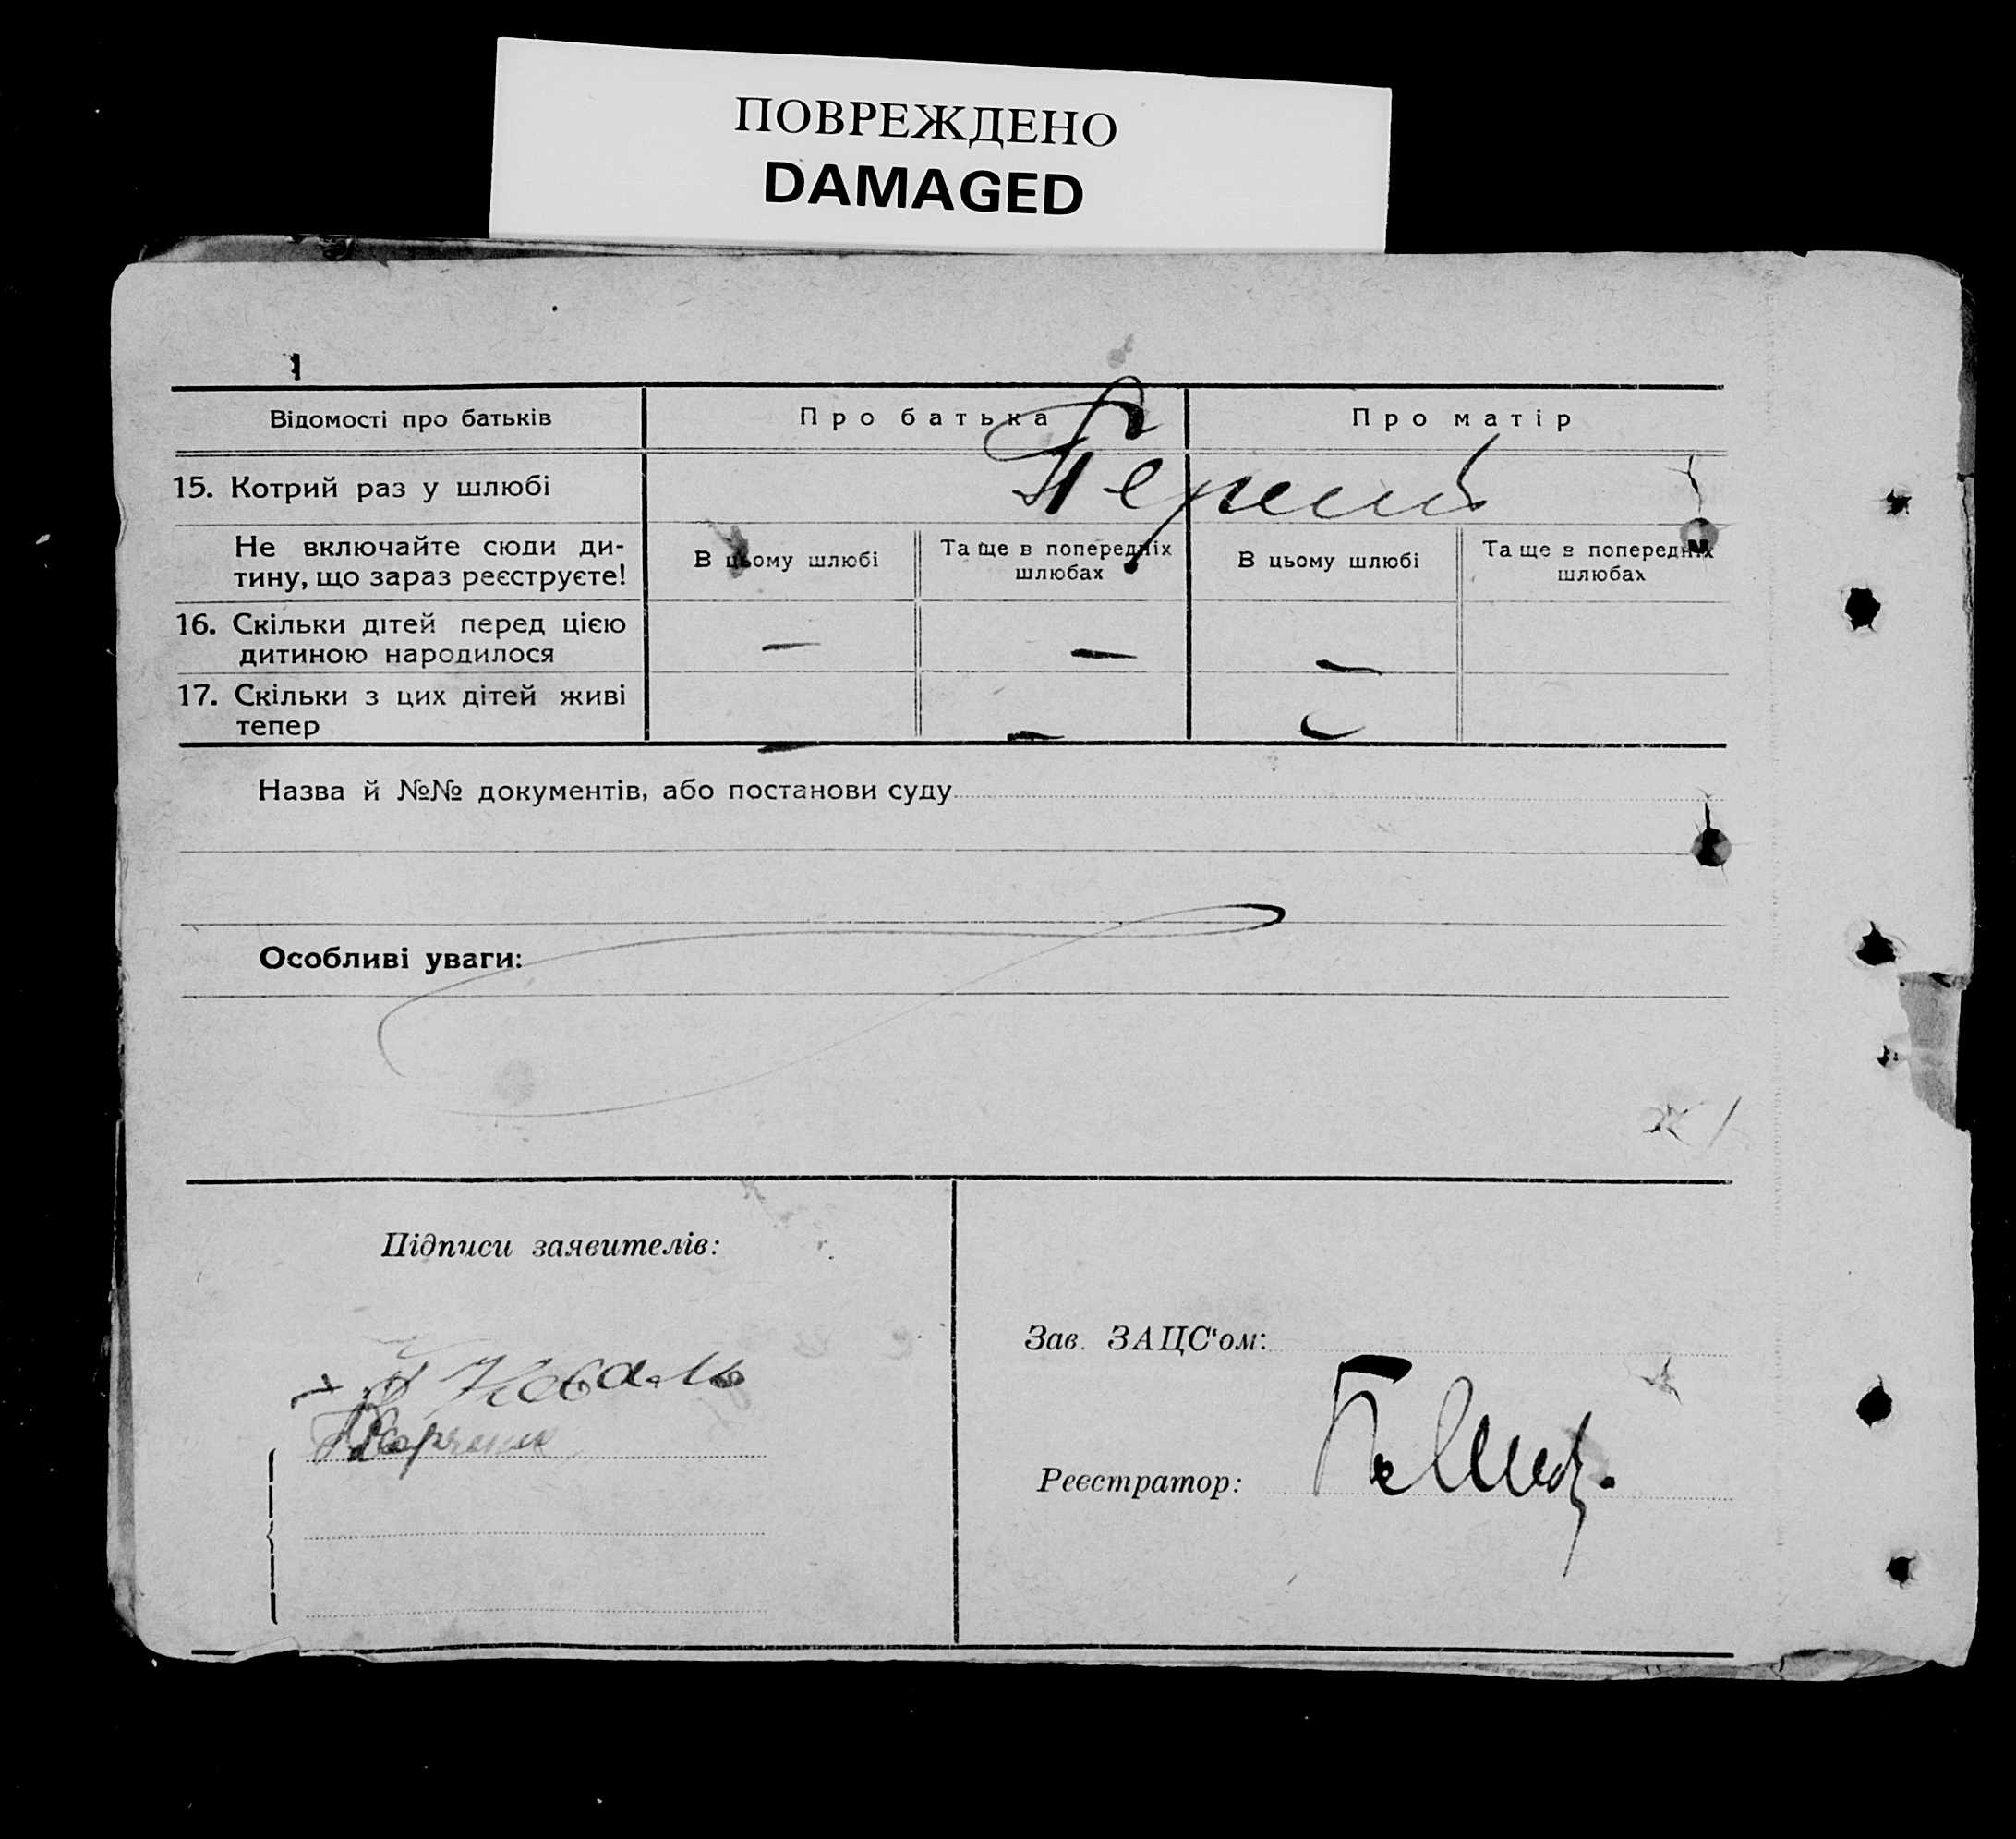 ПОВРЕЖДЕНО
DAMAGED
Відомості про батьків
Про батька
Про матір
15. Котрий раз у шлюбі
Не включайте сюди ди-
тину, що зараз реєструєте!
В цьому шлюбі
Та ще в попередніх
шлюбах
В цьому шлюбі
Та ще в попередніх
шлюбах
16. Скільки дітей перед цією
дитиною народилося
— — —
17. Скільки з цих дітей живі
тепер
— — —
Назва й №№ документів, або постанови суду
Особливі уваги:
Підписи заявителів:
Коваль
Зав. ЗАЦС‘ом:
Реєстратор: